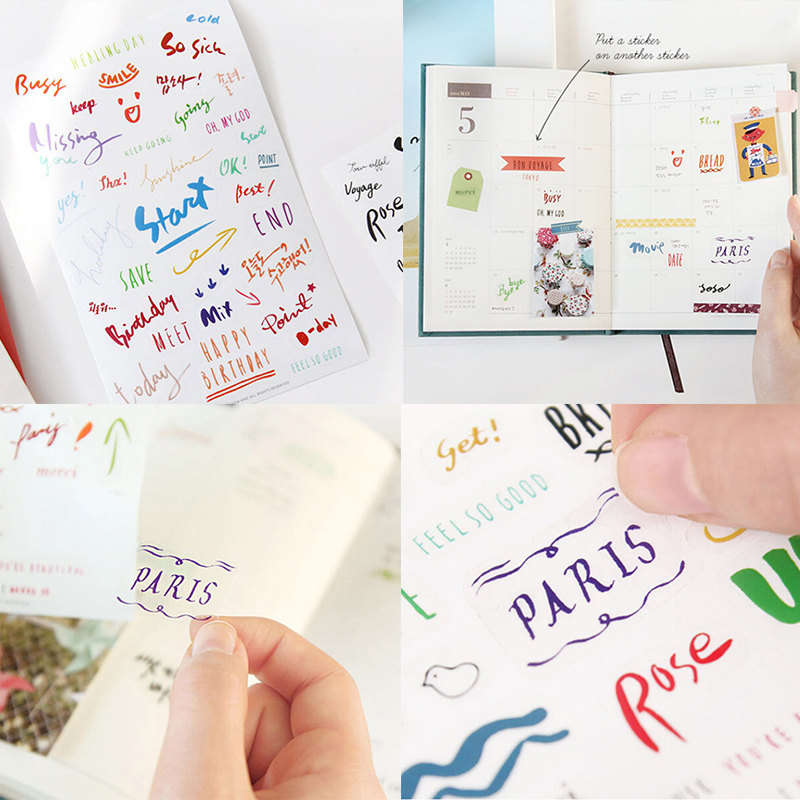 cold
HEALING DAY
So Sick
Busy
SMILE
keep
Going
OH, MY GOD
Missing
you
KEEP GOING
Start
Sunshine
OK!
POINT
yes!
Thx!
Best!
holiday
Start
END
SAVE
오늘도
수고했어!
Birthday
Mix
Point
MEET
D-day
HAPPY
BIRTHDAY
FEEL SO GOOD
today
Voyage
Rose
Put a sticker
on another sticker
5
BON VOYAGE
TOKYO
merci
BUSY
OH, MY GOD
BREAD
Movie
DATE
PARIS
bye
bye
soso
Paris!
merci
YOU'RE BEAUTIFUL
PARIS
Get!
FEEL SO GOOD
PARIS
Rose